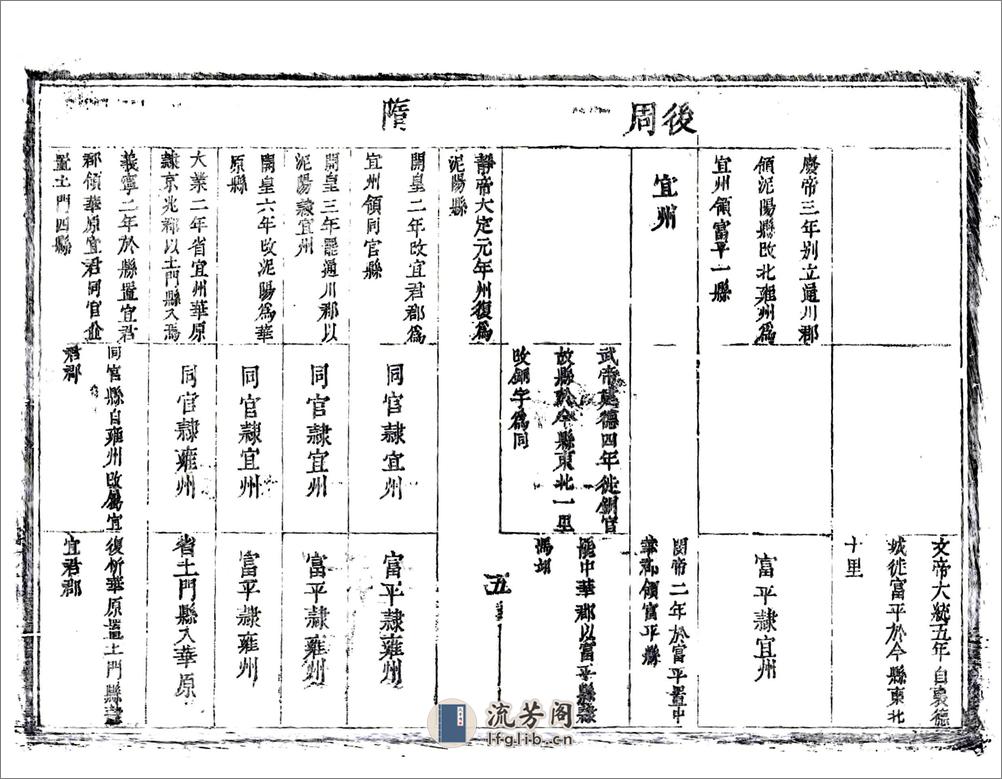 後周
隋
廢帝三年别立通川郡
領泥陽縣改北雍州爲
宜州領富平一縣
宜州
靜帝大定元年州復爲
泥陽縣
開皇二年改宜君郡爲
宜州領同官縣
開皇三年罷通川郡以
泥陽隷宜州
開皇六年改泥陽爲華
原縣
大業二年省宜州華原
隷京兆郡以土門縣入馮
義寧二年於縣置宜君
郡領華原宜君同官並
置土門四縣
武帝建德四年徙銅官
故縣於今縣東北一里
改銅字爲同
同官隷宜州
同官隷宜州
同官隷宜州
同官隷雍州
同官縣自雍州改爲宜
君郡
文帝大統五年自襄德
城徙富平於今縣東北
十里
富平隷宜州
閔帝二年於富平置中
華郡領富平縣
罷中華郡以富平縣隷
馮翊
五
富平隷雍州
富平隷雍州
富平隷雍州
省土門縣入華原
復析華原置土門縣隷
宜君郡
流芳阁
lfglib.cn